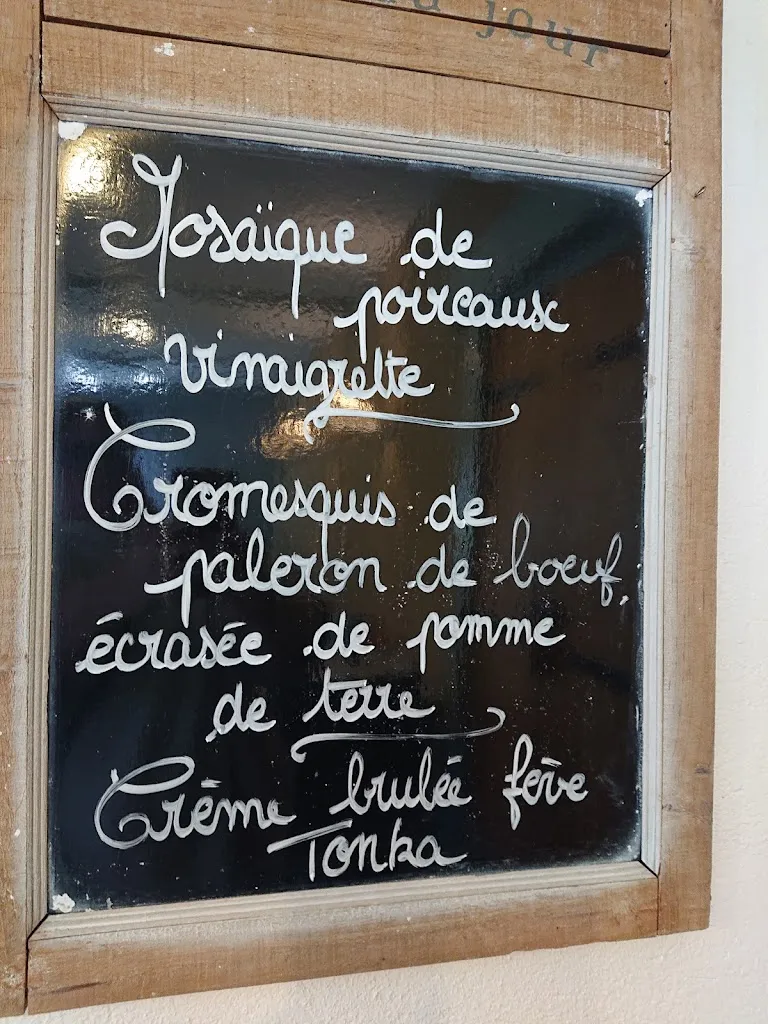 du jour
Mosaïque de
poireaux
vinaigrette
Cromesquis de
paleron de boeuf,
écrasée de pomme
de terre
Crème brulée fève
Tonka